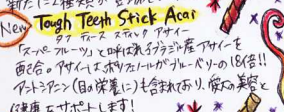 新たに2種類が
New Tough Teeth Stick Acai
タフ ティース スティック アサイー
"スーパーフルーツ"と呼ばれるブラジル産アサイーを
配合。アサイーは、ポリフェノールがブルーベリーの18倍!!
アントシアニン(目の栄養に)も含まれており、愛犬の美容と
健康をサポートします!